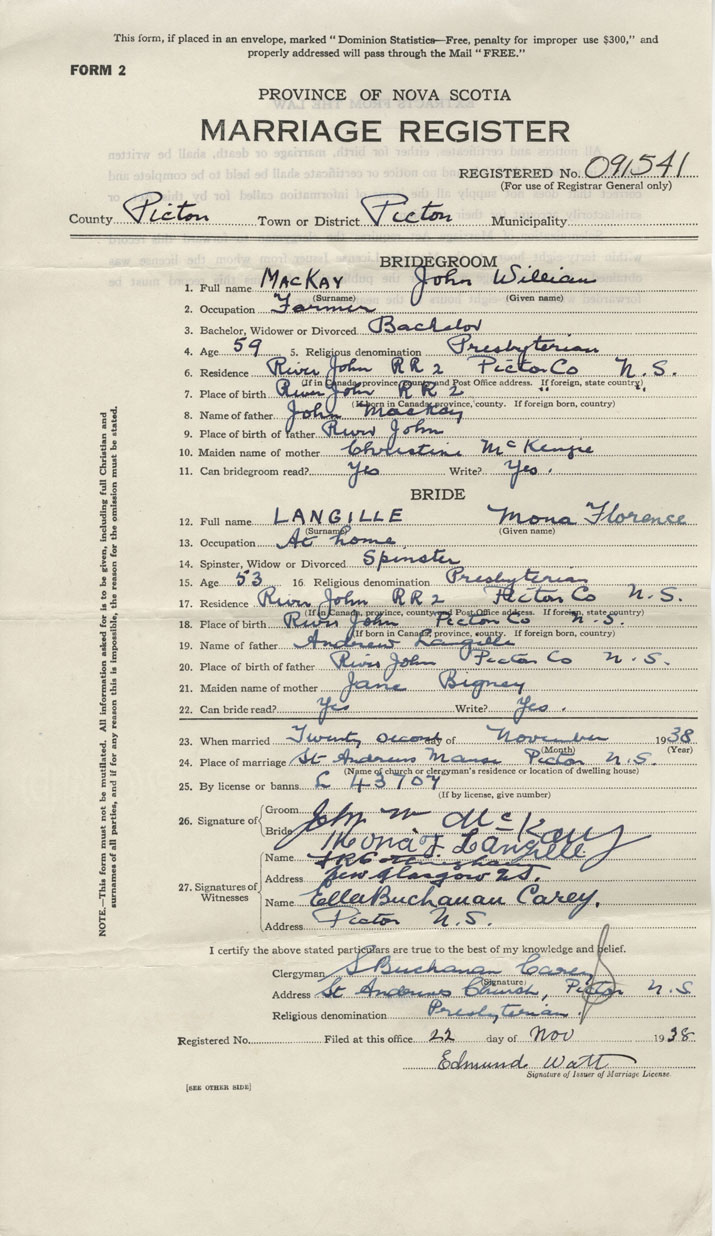 This form, if placed in an envelope, marked "Dominion Statistics—Free, penalty for improper use $300," and
properly addressed will pass through the Mail "FREE."
FORM 2
PROVINCE OF NOVA SCOTIA
MARRIAGE REGISTER
REGISTERED No. 091541
(For use of Registrar General only)
County Pictou Town or District Pictou Municipality
BRIDEGROOM
1. Full name MacKay John William
(Surname) (Given name)
2. Occupation Farmer
3. Bachelor, Widower or Divorced Bachelor
4. Age 59 5. Religious denomination Presbyterian
6. Residence River John RR 2 Pictou Co N.S.
(If in Canada, province, county and Post Office address. If foreign, state country)
7. Place of birth River John RR 2 " "
(If born in Canada, province, county. If foreign born, country)
8. Name of father John MacKay
9. Place of birth of father River John
10. Maiden name of mother Christine McKenzie
11. Can bridegroom read? Yes Write? Yes.
BRIDE
12. Full name LANGILLE Mona Florence
(Surname) (Given name)
13. Occupation At home
14. Spinster, Widow or Divorced Spinster
15. Age 53 16. Religious denomination Presbyterian
17. Residence River John RR 2 Pictou Co N.S.
(If in Canada, province, county and Post Office address. If foreign, state country)
18. Place of birth River John Pictou Co N.S.
(If born in Canada, province, county. If foreign born, country)
19. Name of father Andrew Langille
20. Place of birth of father River John Pictou Co N.S.
21. Maiden name of mother Jane Bigney
22. Can bride read? Yes Write? Yes.
23. When married Twenty second day of November 1938
(Month) (Year)
24. Place of marriage St Andrews Manse Pictou N.S.
(Name of church or clergyman's residence or location of dwelling house)
25. By license or banns L 43707
(If by license, give number)
26. Signature of Groom John W McKay
Bride Mona F Langille
27. Signatures of Witnesses
Name
Address New Glasgow N.S.
Name Ella Buchanan Carey,
Address Pictou N.S.
I certify the above stated particulars are true to the best of my knowledge and belief.
Clergyman S Buchanan Carey
(Signature)
Address St Andrews Church, Pictou N.S
Religious denomination Presbyterian.
Registered No. Filed at this office 22 day of Nov 1938
Edmund Watt
Signature of Issuer of Marriage License
[SEE OTHER SIDE]
NOTE.—This form must not be mutilated. All information asked for is to be given, including full Christian and
surnames of all parties, and if for any reason this is impossible, the reason for the omission must be stated.